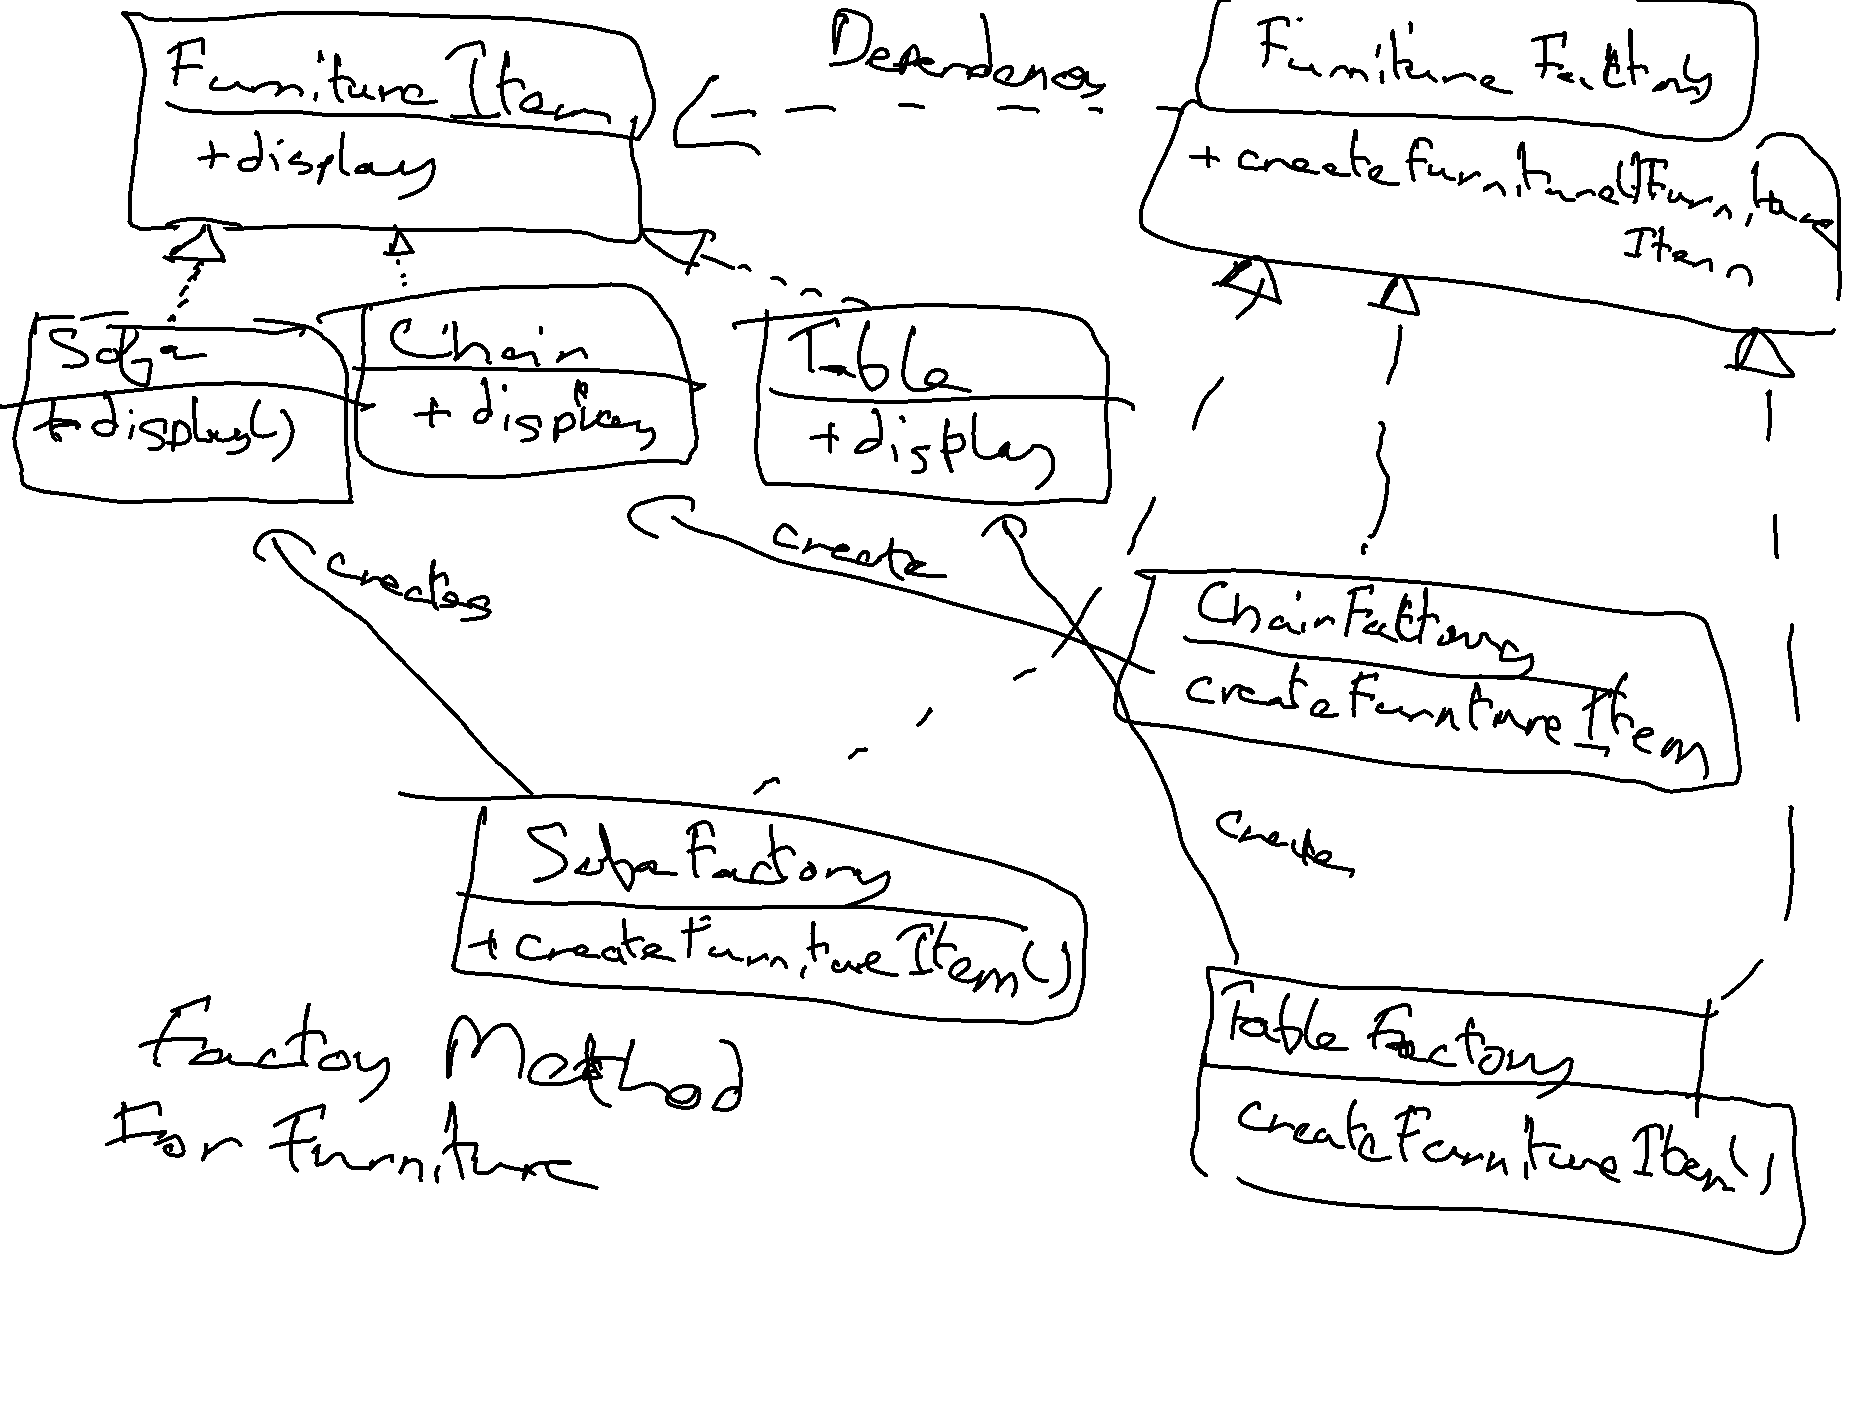 Furniture Item
+display
Dependency
Furniture Factory
+ createfurniture():Furniture
Item
Sofa
+display()
Chair
+ display
Table
+display
creates
create
ChairFactory
createFurnitureItem
create
SofaFactory
+createFurnitureItem()
Table Factory
createFurnitureItem()
Factory Method
For Furniture